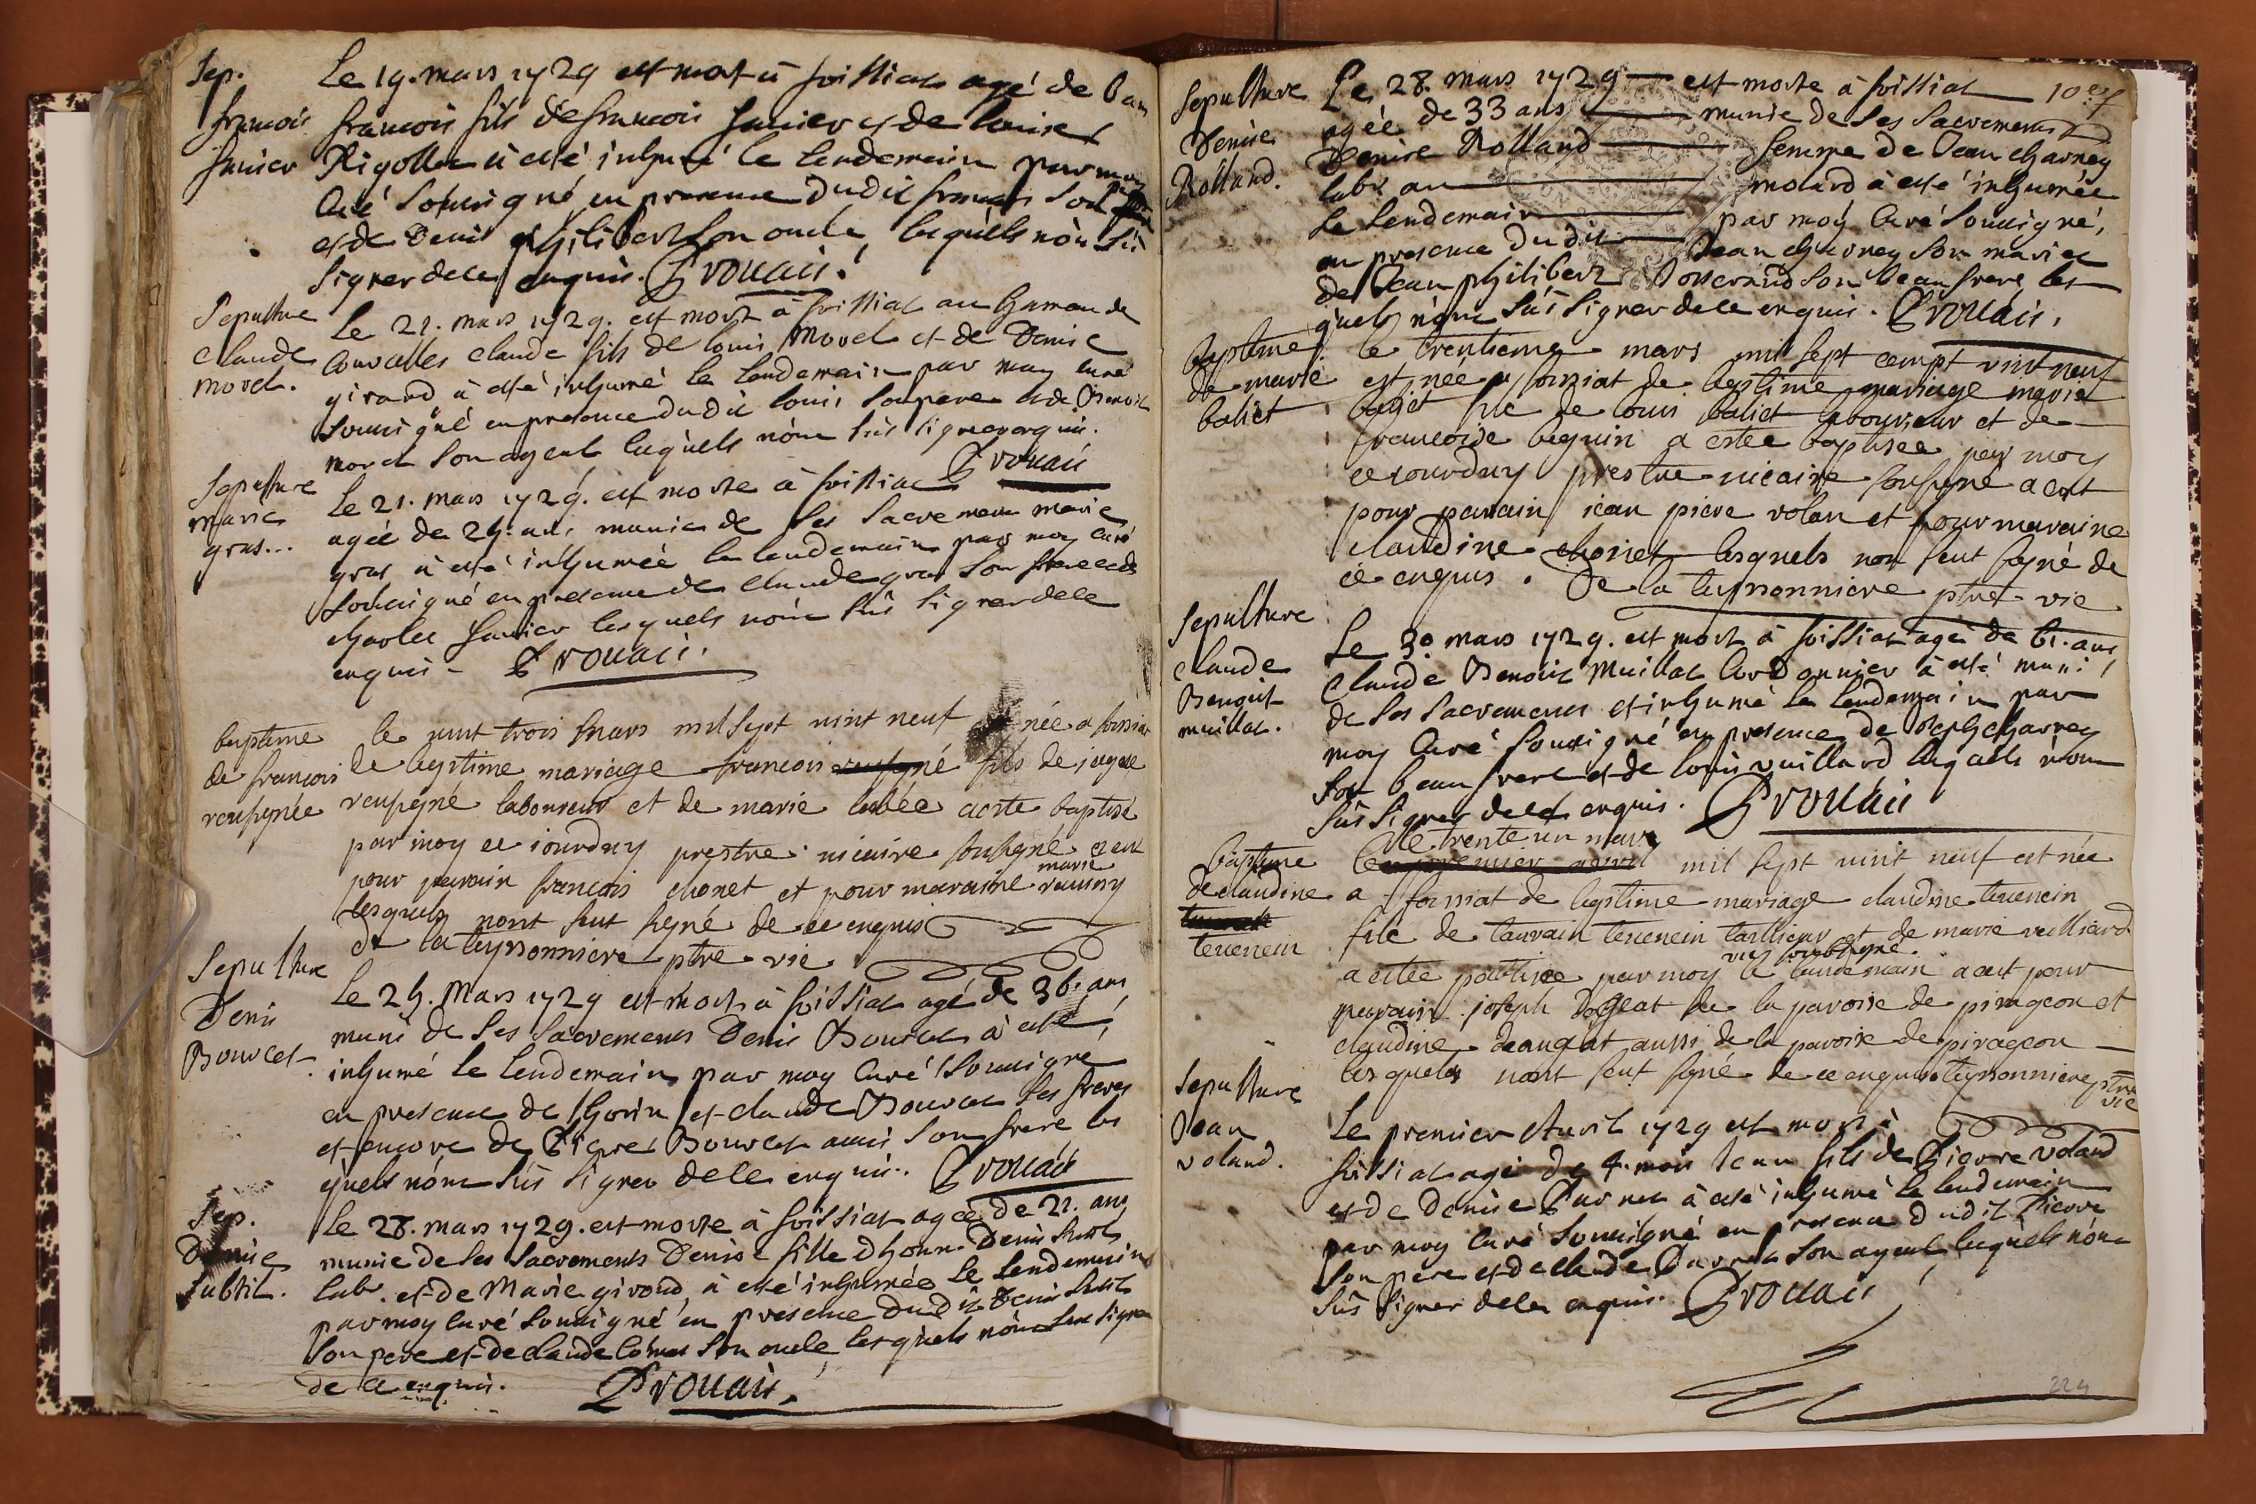 Sep.
françois
Janier
Le 19. mars 1729 est mort à foissiat agé de 6 ans
françois fils de françois Janier et de louise
Rigollet à esté inhumé le lendemain par moy
Curé soussigné en presence dudit françois son
et de Denis philibert son oncle, lesquels n'ont sû
signer de ce enquis. Provais.
Sepulture
claude
morel.
Le 21. mars 1729. est mort à foissiat au hameau de
Couvettes claude fils de louis Morel et de Denise
girard à esté inhumé le lendemain par moy curé
soussigné en presence dudit louis son pere et de Benoit
morel son ayeul lesquels n'ont sûs signer enquis.
Provais
Sepulture
marie
gras...
Le 21. mars 1729. est morte à foissiat
agée de 24. ans munie de ses sacremens marie
gras à esté inhumée le lendemain par moy curé
soussigné en presence de claude gras son frere et de
charles Janier lesquels n'ont sûs signer de ce
enquis - Provais.
bapteme
de françois
reupgnée
le vint trois mars mil sept vint neuf née a foissiat
de legitime mariage françois reupgné fils de jaque
reupgné laboureur et de marie lubée a esté baptisé
par moy ce jourduy prestre vicaire soussigné a eut
pour parain françois chonet et pour maraine marie
lesquels n'ont seut signé de ce enquis
De la teyssonniere ptre vic
Sepulture
Denis
Bourcet.
Le 24. Mars 1729 est mort à foissiat agé de 36. ans
muni de ses sacremens Denis Bourcet à esté
inhumé le lendemain par moy Curé soussigné
en presence de et claude Bourcet ses freres
et encore de Pierre Bourcet aussi son frere les
quels n'ont sûs signer de ce enquis. Provais
Sep.
Denise
Subtil.
Le 28. mars 1729. est morte à foissiat agée de 21. ans
munie de ses sacremens Denise fille d'honn. Denis Subtil
labr. et de Marie giroud à esté inhumée le lendemain
par moy curé soussigné en presence dudit Denis Subtil
son pere et de claude son oncle lesquels n'ont sûs signer
de ce enquis. Provais.
10e f
Sepulture
Denise
Rolland.
Le 28. mars 1729 est morte à foissiat
agée de 33 ans munie de ses sacremens
Denise Rolland femme de Jean charnay
labr. au molard à esté inhumée
le lendemain par moy Curé soussigné,
en presence dudit Jean charnay son mari et
de Jean philibert Josserand son beau frere, les
quels n'ont sûs signer de ce enquis. Provais.
baptême
de marie
baliet
le trentieme mars mil sept cempt vint neuf
est née a foissiat de legitime mariage marie
baliet file de louis baliet laboureur et de
françoise beguin a estée baptisée par moy
ce jourduy prestre vicaire soussigné a eut
pour parain jean piere volan et pour maraine
claudine chonet lesquels non seut signé de
ce enquis. De la teyssonniere ptre vic
Sepulture
claude
Benoist
muillat.
Le 30 mars 1729. est mort à foissiat agé de 61. ans
Claude Benoist Muillat Cordonnier à esté muni
de ses sacremens et inhumé le lendemain par
moy Curé soussigné en presence de Joseph charnay
son beau frere et de louis vuillard lesquels n'ont
sûs signer de ce enquis. Provais
baptême
de claudine
terenein
le trente un mars
le premier avril mil sept vint neuf est née
a foissiat de legitime mariage claudine terenein
file de tauvain terenein taillieur et de marie veilliard
a estée batisée par moy le lendemain a eut pour
vic soubsigné.
parain joseph dogeat de la paroise de pirageou et
claudine deaugat aussi de la paroise de pirageou
lesquels n'ont seut signé de ce enquis teyssonniere ptre
vic
Sepulture
Jean
voland.
Le premier Avril 1729 est mort à
foissiat agé de 4. mois Jean fils de Pierre voland
et de Denise Parnet à esté inhumé le lendemain
par moy Curé soussigné en presence dudit Pierre
son pere et de claude Parnet son ayeul, lesquels n'ont
sûs signer de ce enquis. Provais
224